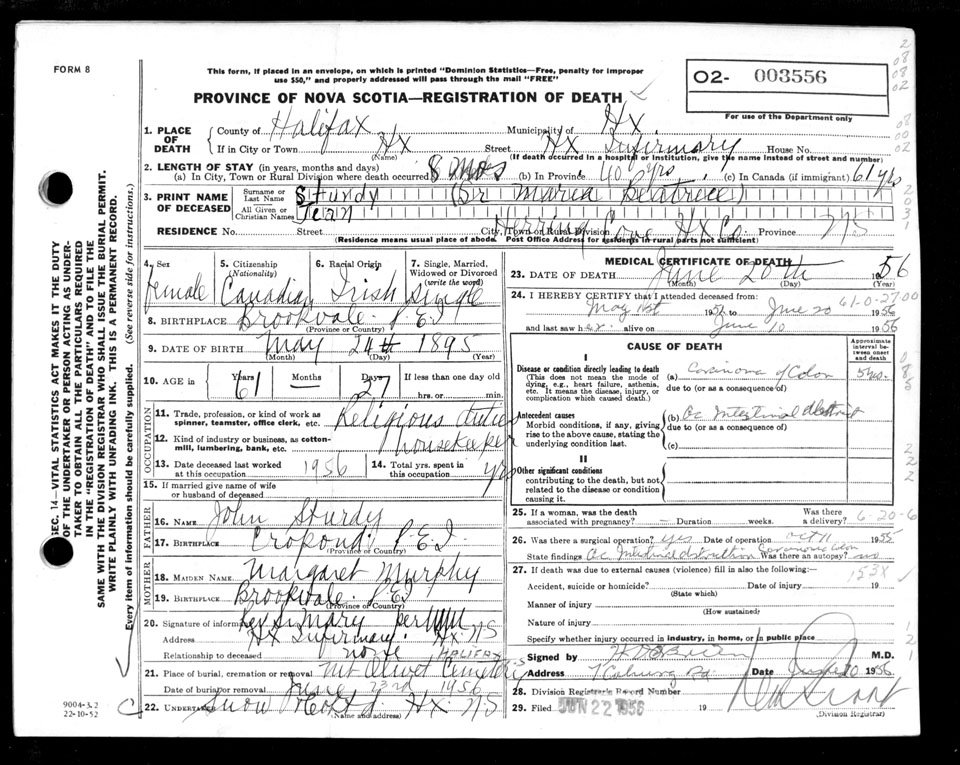 FORM 8
This form, if placed in an envelope, on which is printed "Dominion Statistics—Free, penalty for improper
use $50," and properly addressed will pass through the mail "FREE"
O2- 003556
For use of the Department only
PROVINCE OF NOVA SCOTIA—REGISTRATION OF DEATH
1. PLACE OF DEATH { County of Halifax Municipality of Hx.
If in City or Town Hx (Name) Street Hx Infirmary House No.
(If death occurred in a hospital or institution, give the name instead of street and number)
2. LENGTH OF STAY (in years, months and days)
(a) In City, Town or Rural Division where death occurred 8 mos (b) In Province 40 yrs. (c) In Canada (if immigrant) 61 yrs
3. PRINT NAME OF DECEASED { Surname or Last Name Sturdy (Sr Maria Beatrice)
All Given or Christian Names Jean
RESIDENCE No. Street City, Town or Rural Division Herring Cove Hx Co. Province NS
(Residence means usual place of abode. Post Office Address for residents in rural parts not sufficient)
4. Sex female
5. Citizenship (Nationality) Canadian
6. Racial Origin Irish
7. Single, Married, Widowed or Divorced (write the word) Single
8. BIRTHPLACE Brookvale P.E.I
(Province or Country)
9. DATE OF BIRTH May 24th 1895
(Month) (Day) (Year)
10. AGE in { Years 61 Months — Days 27 If less than one day old
hrs. or min.
OCCUPATION
11. Trade, profession, or kind of work as spinner, teamster, office clerk, etc. Religious duties
12. Kind of industry or business, as cotton-mill, lumbering, bank, etc. housekeeper
13. Date deceased last worked at this occupation 1956 14. Total yrs. spent in this occupation yrs
15. If married give name of wife or husband of deceased
FATHER
16. NAME John Sturdy
17. BIRTHPLACE P.E.I.
(Province or Country)
MOTHER
18. MAIDEN NAME Margaret Murphy
19. BIRTHPLACE Brookvale P.E.I
(Province or Country)
20. Signature of informant Mary per
Address Hx Infirmary. Hx. NS
Relationship to deceased none
21. Place of burial, cremation or removal Mt Olivet Cemetery HALIFAX
Date of burial or removal June 23rd 1956
22. UNDERTAKER Snow & Co Ltd. Hx. NS
(Name and address)
MEDICAL CERTIFICATE OF DEATH
23. DATE OF DEATH June 20th 1956
(Month) (Day) (Year)
24. I HEREBY CERTIFY that I attended deceased from: 61-0-27-00
May 1st 1956 to June 20 1956
and last saw her alive on June 10 1956
CAUSE OF DEATH
Approximate interval between onset and death
I
Disease or condition directly leading to death
(This does not mean the mode of dying, e.g., heart failure, asthenia, etc. It means the disease, injury, or complication which caused death.)
(a) Carcinoma of Colon
due to (or as a consequence of)
Antecedent causes
Morbid conditions, if any, giving rise to the above cause, stating the underlying condition last.
(b) Ac Intestinal obstruct
due to (or as a consequence of)
(c)
II
Other significant conditions
contributing to the death, but not related to the disease or condition causing it.
25. If a woman, was the death associated with pregnancy? — Duration weeks. Was there a delivery? 6-20-6
26. Was there a surgical operation? yes Date of operation Oct 11 1955
State findings Ac Intestinal obstruction Carcinoma Colon Was there an autopsy? no
27. If death was due to external causes (violence) fill in also the following:—
153X
Accident, suicide or homicide? Date of injury 19
(State which)
Manner of injury
(How sustained)
Nature of injury
Specify whether injury occurred in industry, in home, or in public place
Signed by M.D.
Address 7 Coburg Rd Date June 20 1956
28. Division Registrar's Record Number
29. Filed JUN 22 1956 19
(Division Registrar)
SEC. 14—VITAL STATISTICS ACT MAKES IT THE DUTY
OF THE UNDERTAKER OR PERSON ACTING AS UNDERTAKER
TO OBTAIN ALL THE PARTICULARS REQUIRED
IN THE "REGISTRATION OF DEATH" AND TO FILE THE
SAME WITH THE DIVISION REGISTRAR WHO SHALL ISSUE THE BURIAL PERMIT.
WRITE PLAINLY WITH UNFADING INK. THIS IS A PERMANENT RECORD.
Every item of information should be carefully supplied. (See reverse side for instructions.)
9004-3.2
22-10-52